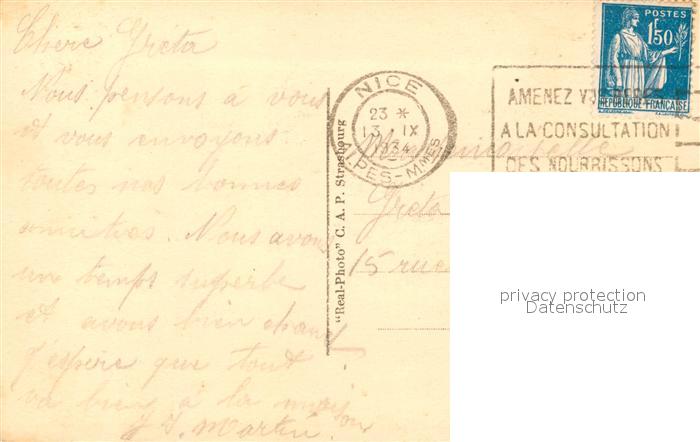 Chère Greta
Nous pensons à vous
et vous envoyons
toutes nos bonnes
amitiés. Nous avons
un temps superbe
et avons bien chaud
j'espère que tout
va bien à la maison
Martin
"Real-Photo" C. A. P. Strasbourg
NICE
23 *
13 IX
1934
ALPES-MMES
POSTES
1f50
REPUBLIQUE FRANÇAISE
AMENEZ VOS BEBES
A LA CONSULTATION
DES NOURRISSONS
Mademoiselle
Greta
15 rue
privacy protection
Datenschutz